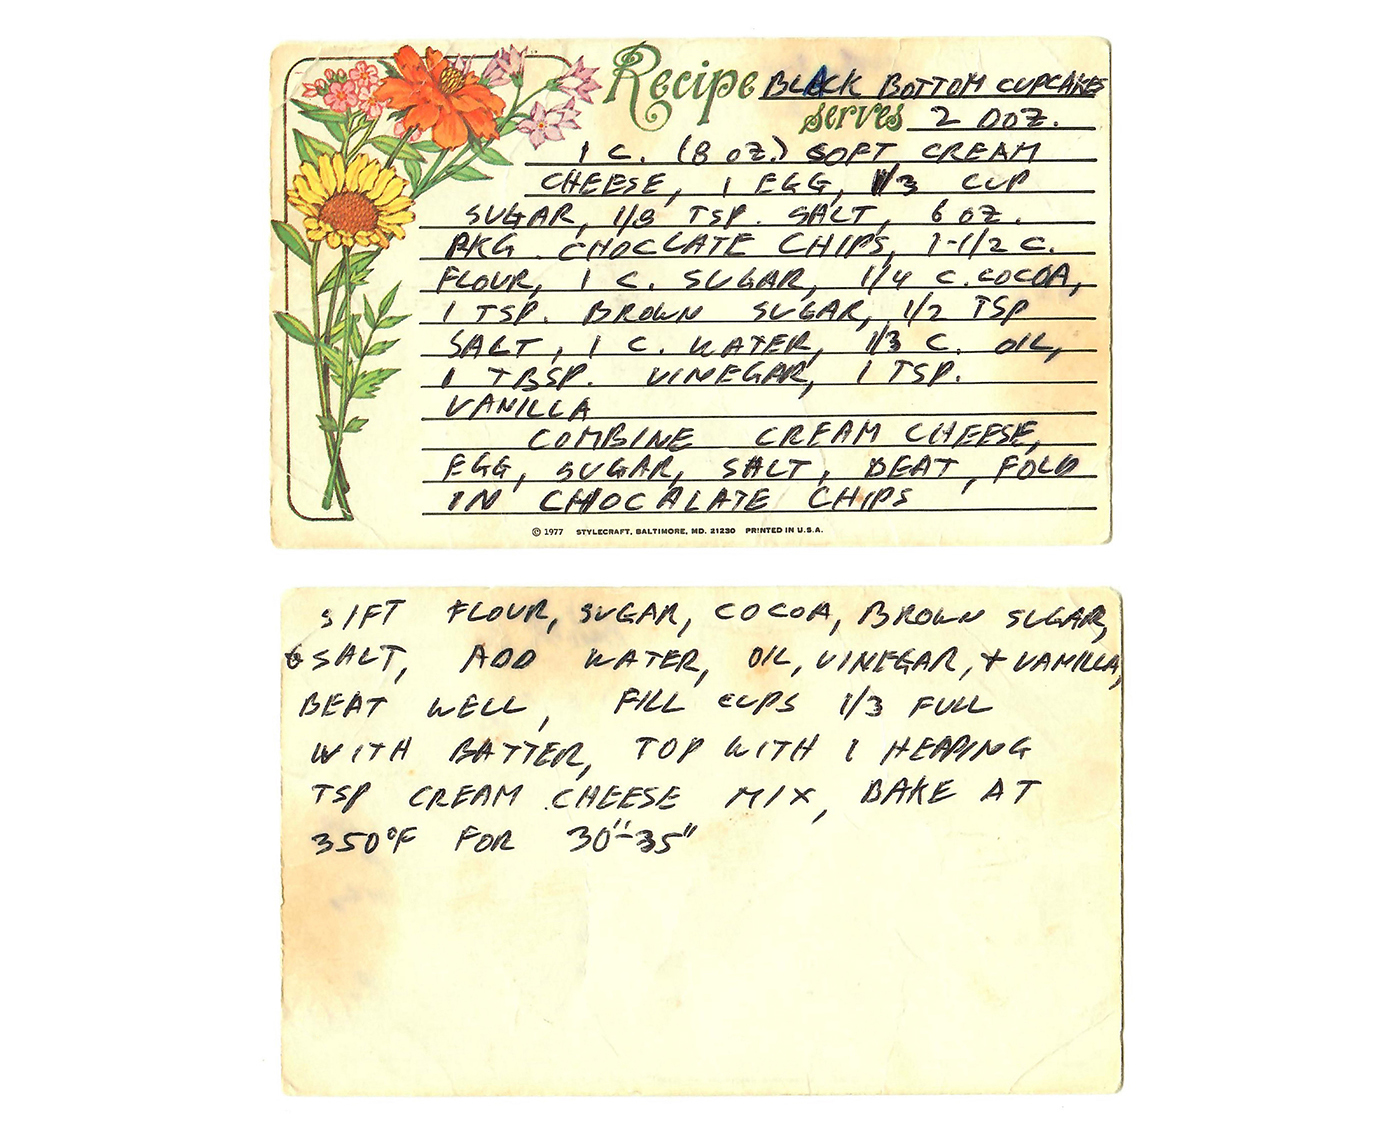 Recipe BLACK BOTTOM CUPCAKES
serves 2 DOZ.
1 C. (8 OZ.) SOFT CREAM
CHEESE, 1 EGG, 1/3 CUP
SUGAR, 1/8 TSP. SALT, 6 OZ.
PKG. CHOCLATE CHIPS, 1-1/2 C.
FLOUR, 1 C. SUGAR, 1/4 C. COCOA,
1 TSP. BROWN SUGAR, 1/2 TSP
SALT, 1 C. WATER, 1/3 C. OIL,
1 TBSP. VINEGAR, 1 TSP.
VANILLA
COMBINE CREAM CHEESE,
EGG, SUGAR, SALT, BEAT, FOLD
IN CHOCALATE CHIPS
© 1977 STYLECRAFT, BALTIMORE, MD. 21230 PRINTED IN U.S.A.
SIFT FLOUR, SUGAR, COCOA, BROWN SUGAR,
& SALT, ADD WATER, OIL, VINEGAR, + VANILLA,
BEAT WELL, FILL CUPS 1/3 FULL
WITH BATTER, TOP WITH 1 HEAPING
TSP CREAM CHEESE MIX, BAKE AT
350°F FOR 30"-35"